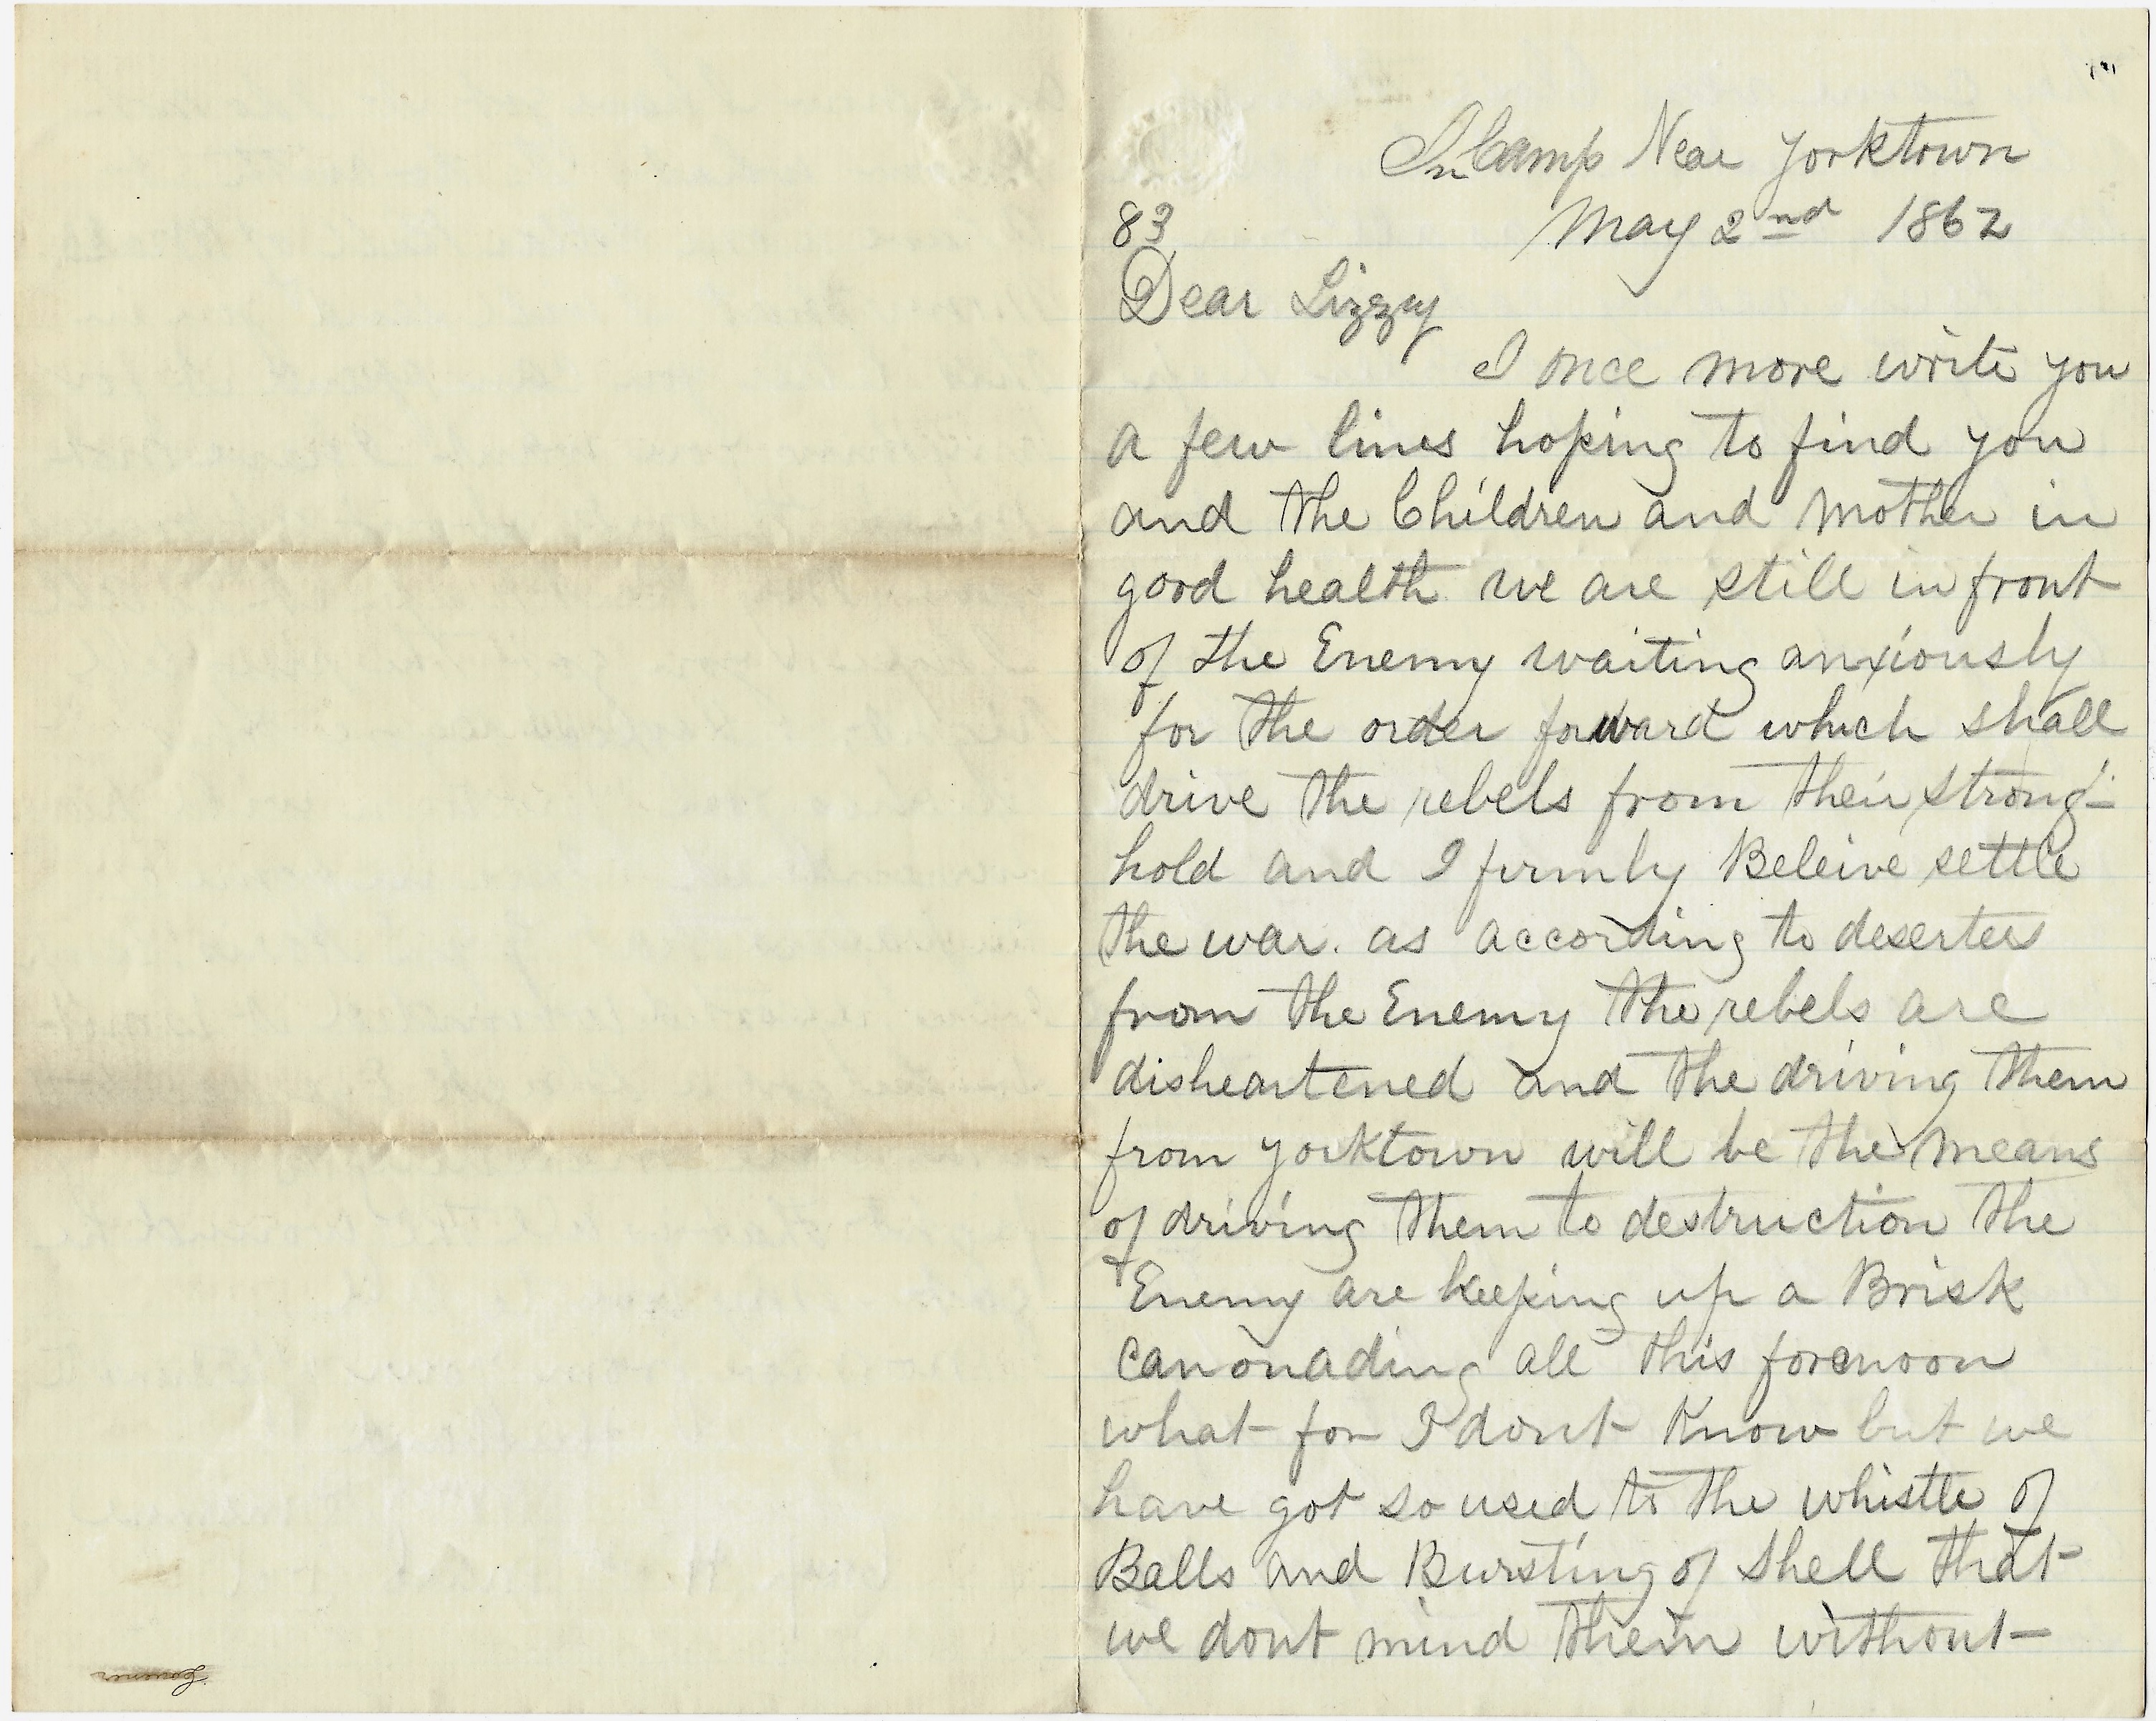 In Camp Near Yorktown
83 May 2nd 1862
Dear Lizzy
I once more write you
a few lines hoping to find you
and the Children and Mother in
good health we are still in front
of the Enemy waiting anxiously
for the order forward which shall
drive the rebels from their strong-
hold and I firmly Beleive settle
the war. as according to deserters
from the Enemy the rebels are
disheartened and the driving them
from yorktown will be the means
of driving them to destruction the
Enemy are keeping up a Brisk
canonading all this forenoon
what for I dont Know but we
have got so used to the whistle of
Balls and Bursting of Shell that
we dont mind them without